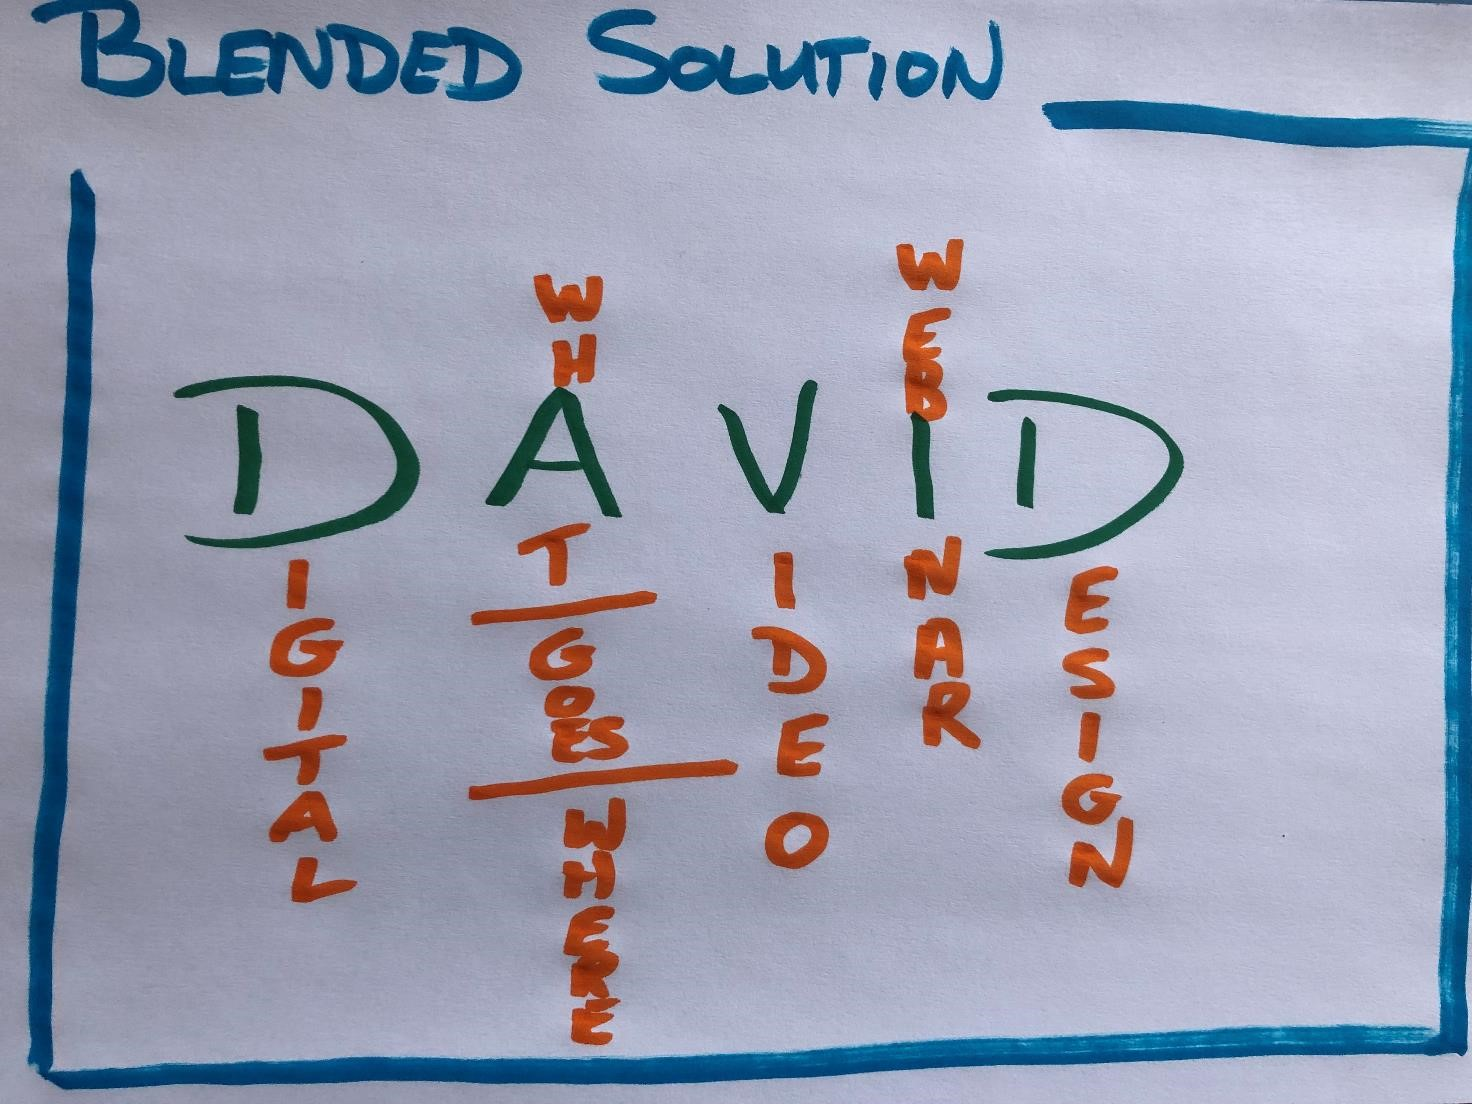 BLENDED SOLUTION
DAVID
DIGITAL
WHAT
GOES
WHERE
VIDEO
WEBINAR
DESIGN